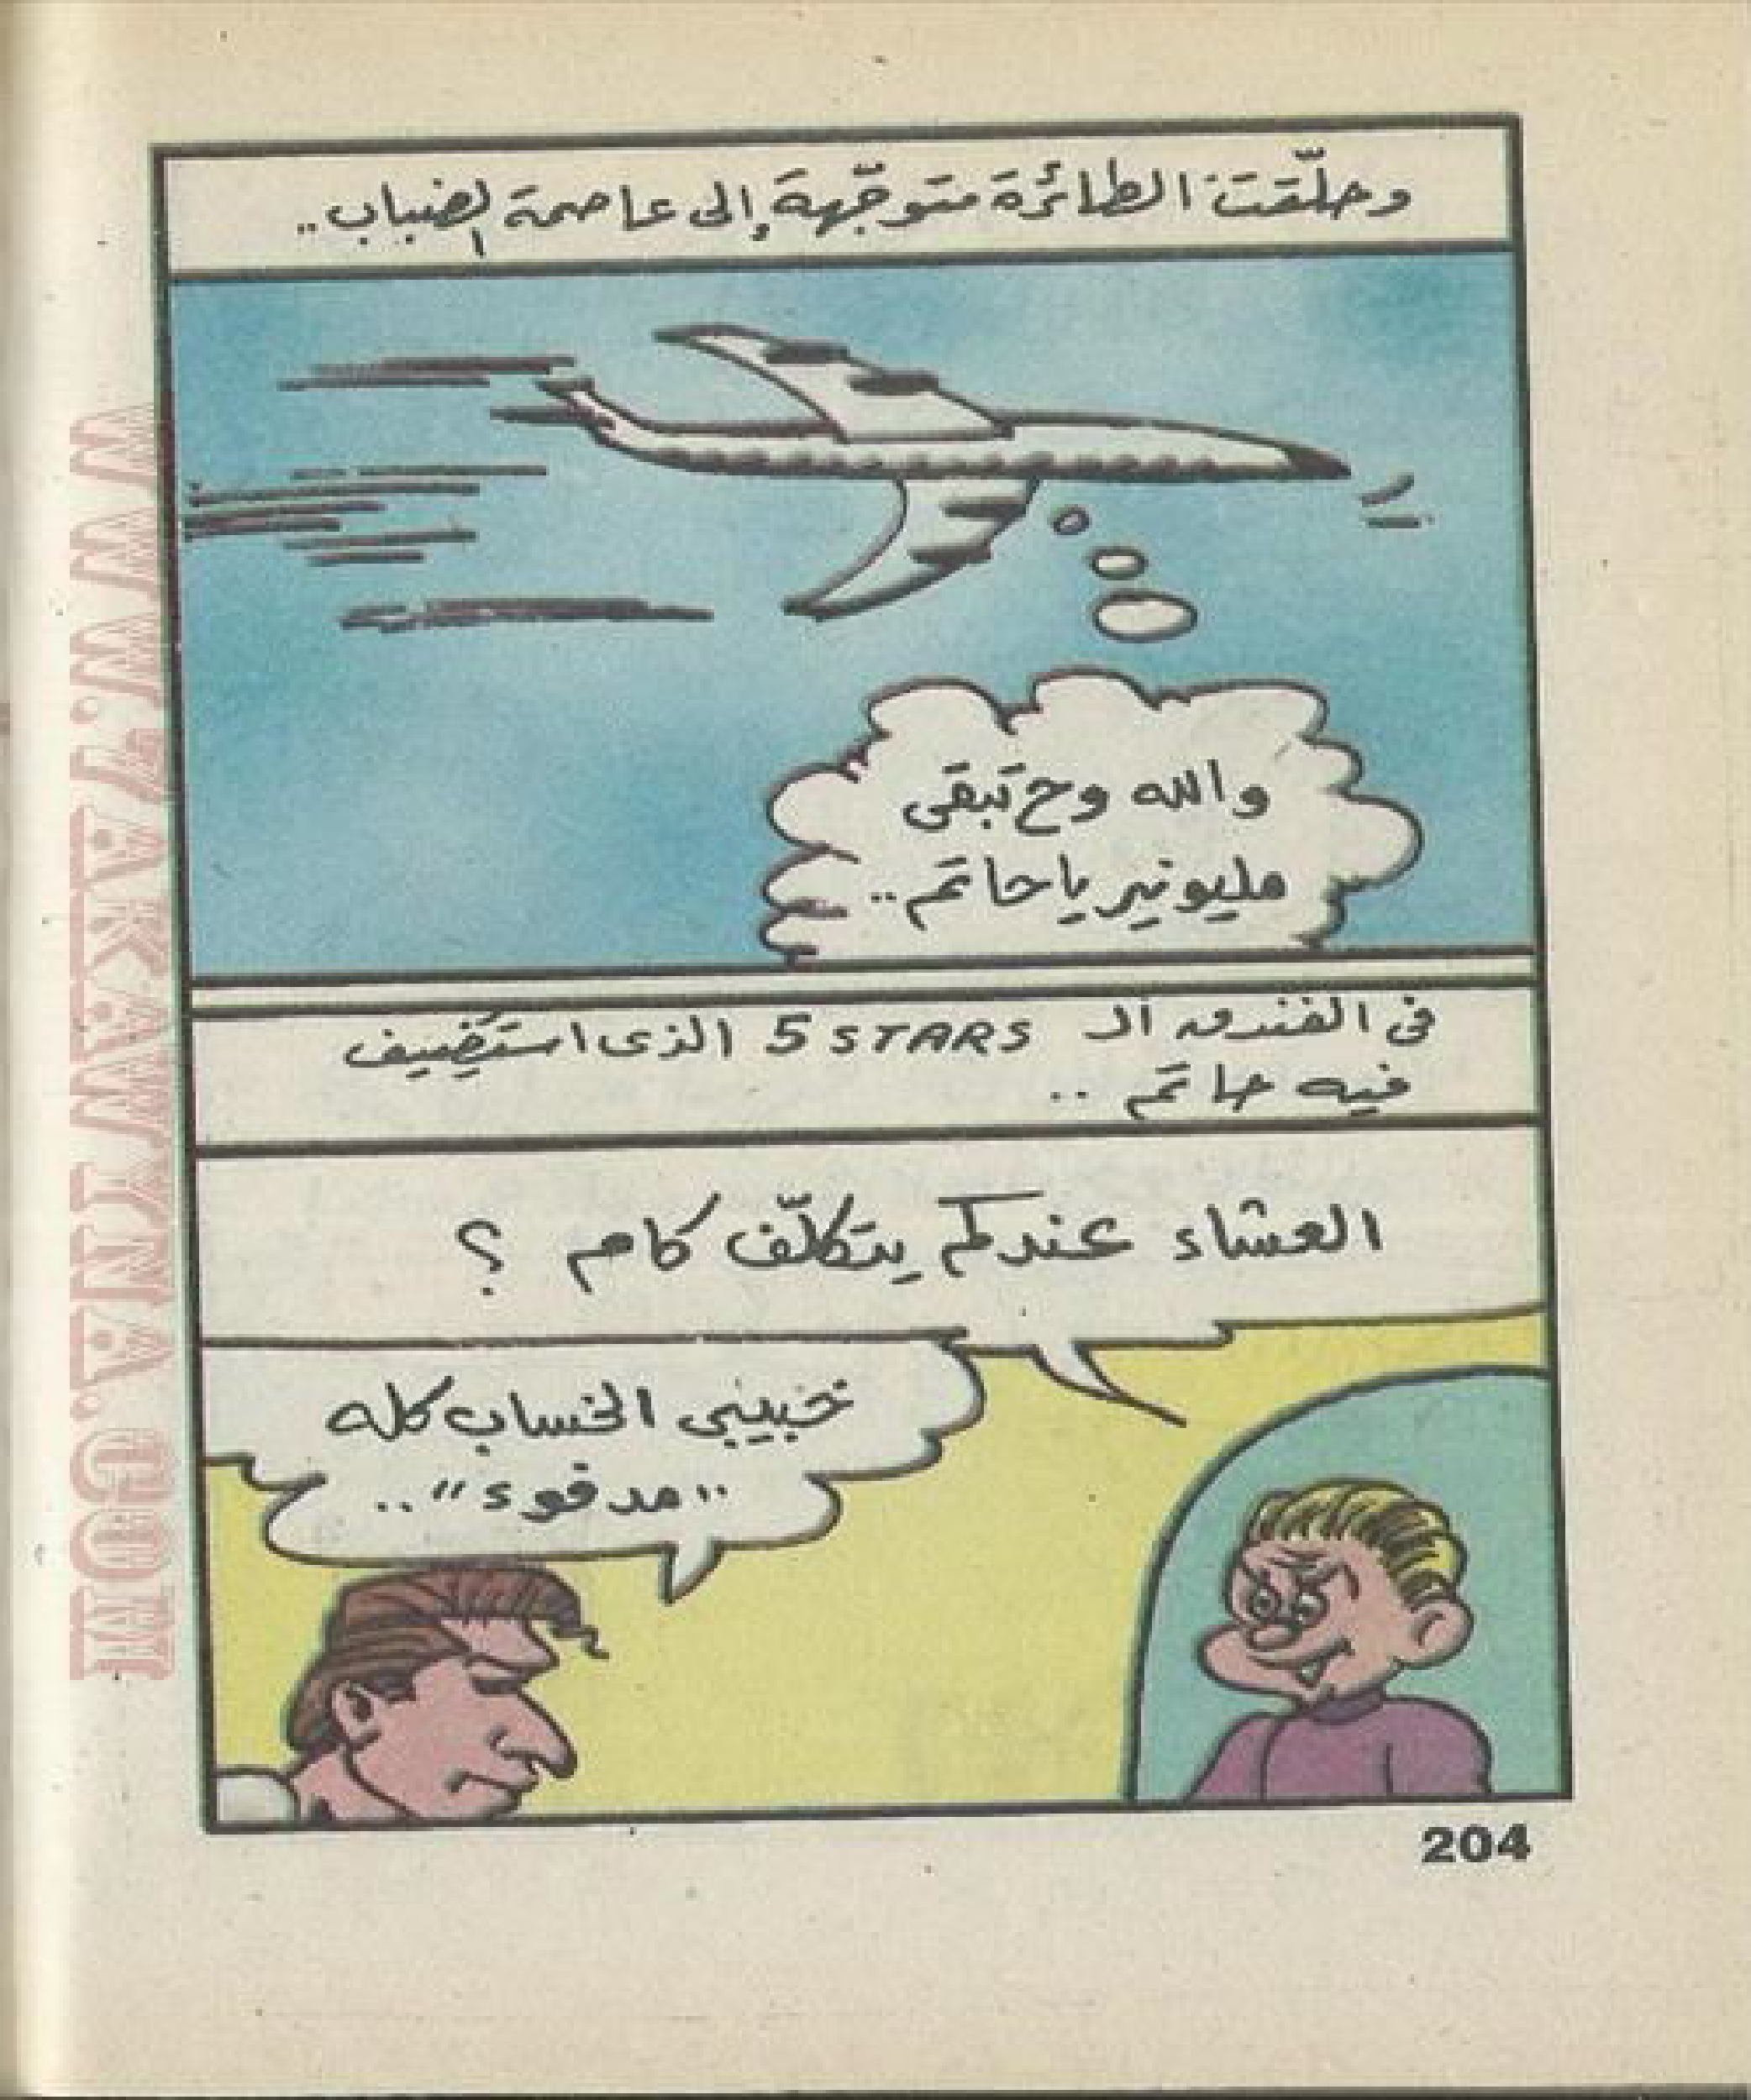 وحلّقت الطائرة متوجّهة إلى عاصمة الضباب..
والله وح تَبقى
مليونير يا حاتم..
فى الفندق الـ 5 STARS الذى استُضيف
فيه حاتم ..
العشاء عندكم يتكلّف كام ؟
خبيبى الخساب كله
"مدفوء"..
204
WWW.7AKAWITNA.COM